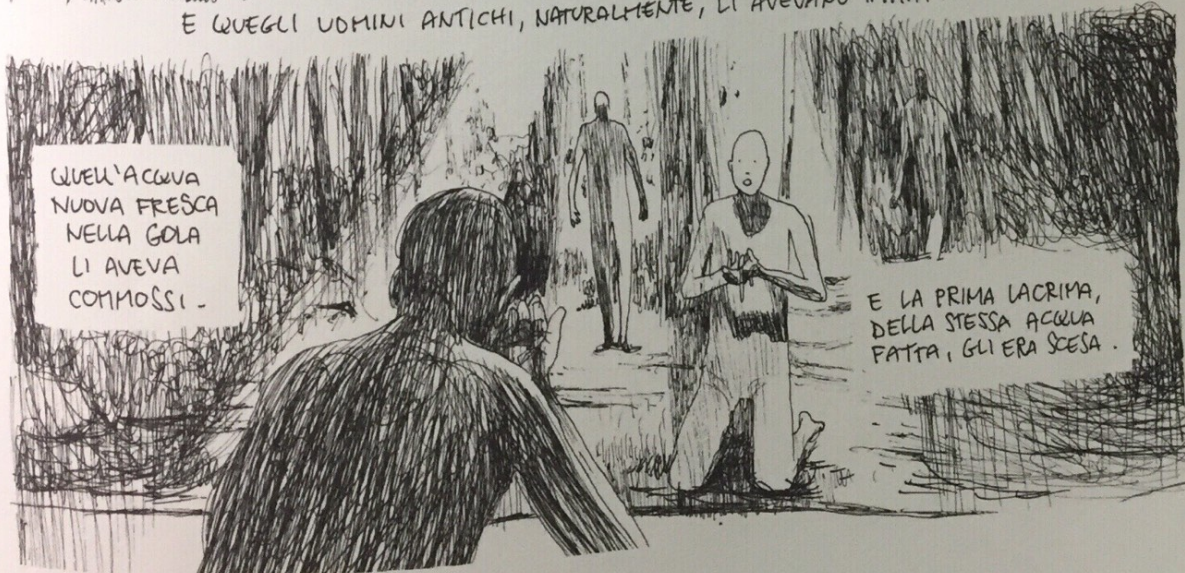 E QUEGLI UOMINI ANTICHI, NATURALMENTE, LI AVEVANO
QUELL'ACQUA
NUOVA FRESCA
NELLA GOLA
LI AVEVA
COMMOSSI.
E LA PRIMA LACRIMA,
DELLA STESSA ACQUA
FATTA, GLI ERA SCESA.